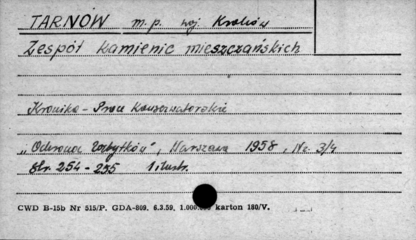 TARNÓW m.p. woj. Kraków
Zespół kamienic mieszczańskich
Kronika - Prace konserwatorskie
„Ochrona Zabytków", Warszawa 1958, Nr. 3/4
Str. 254-255 1 ilustr.
CWD B-15b Nr 515/P. GDA-809. 6.3.59. 1.000.000 karton 180/V.